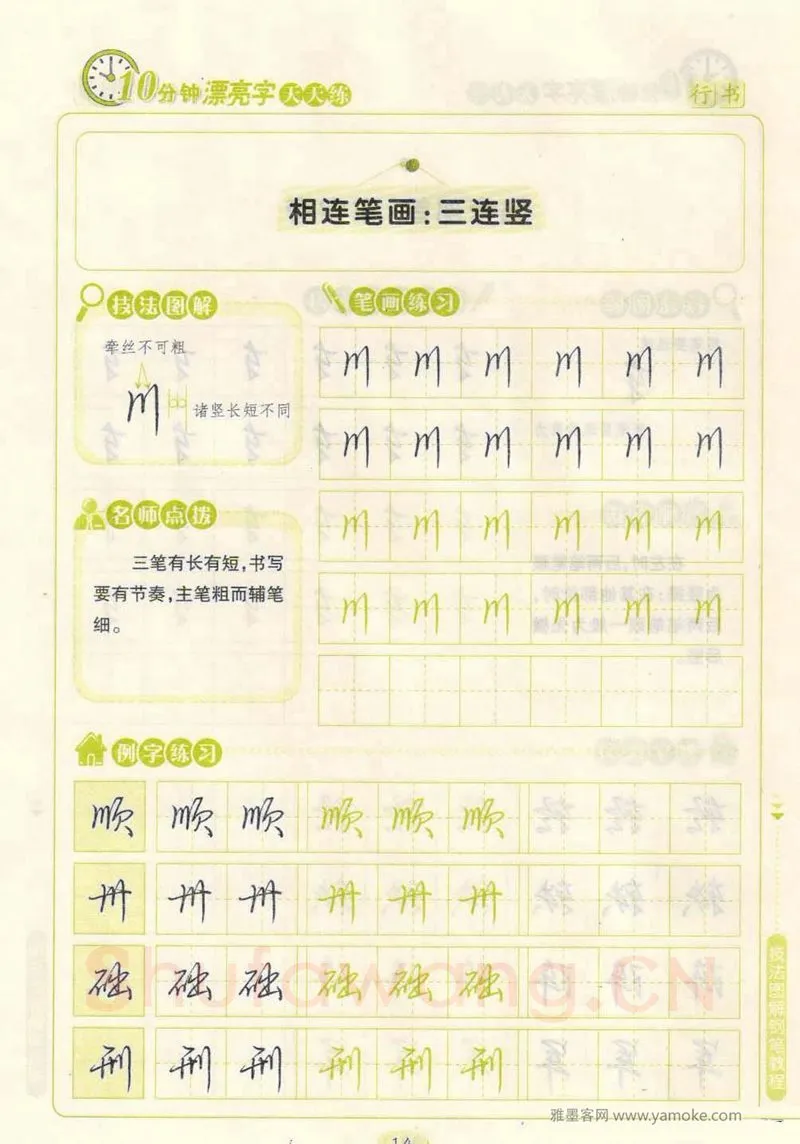 10分钟漂亮字天天练
行书
相连笔画:三连竖
技法图解
牵丝不可粗
川
诸竖长短不同
名师点拨
三笔有长有短,书写
要有节奏,主笔粗而辅笔
细。
笔画练习
川 川 川 川 川 川
川 川 川 川 川 川
川 川 川 川 川 川
川 川 川 川 川 川
例字练习
顺 顺 顺 顺 顺 顺
卅 卅 卅 卅 卅 卅
础 础 础 础 础 础
刑 刑 刑 刑 刑 刑
技法图解钢笔教程
Shufawang.CN
雅墨客网 www.yamoke.com
14